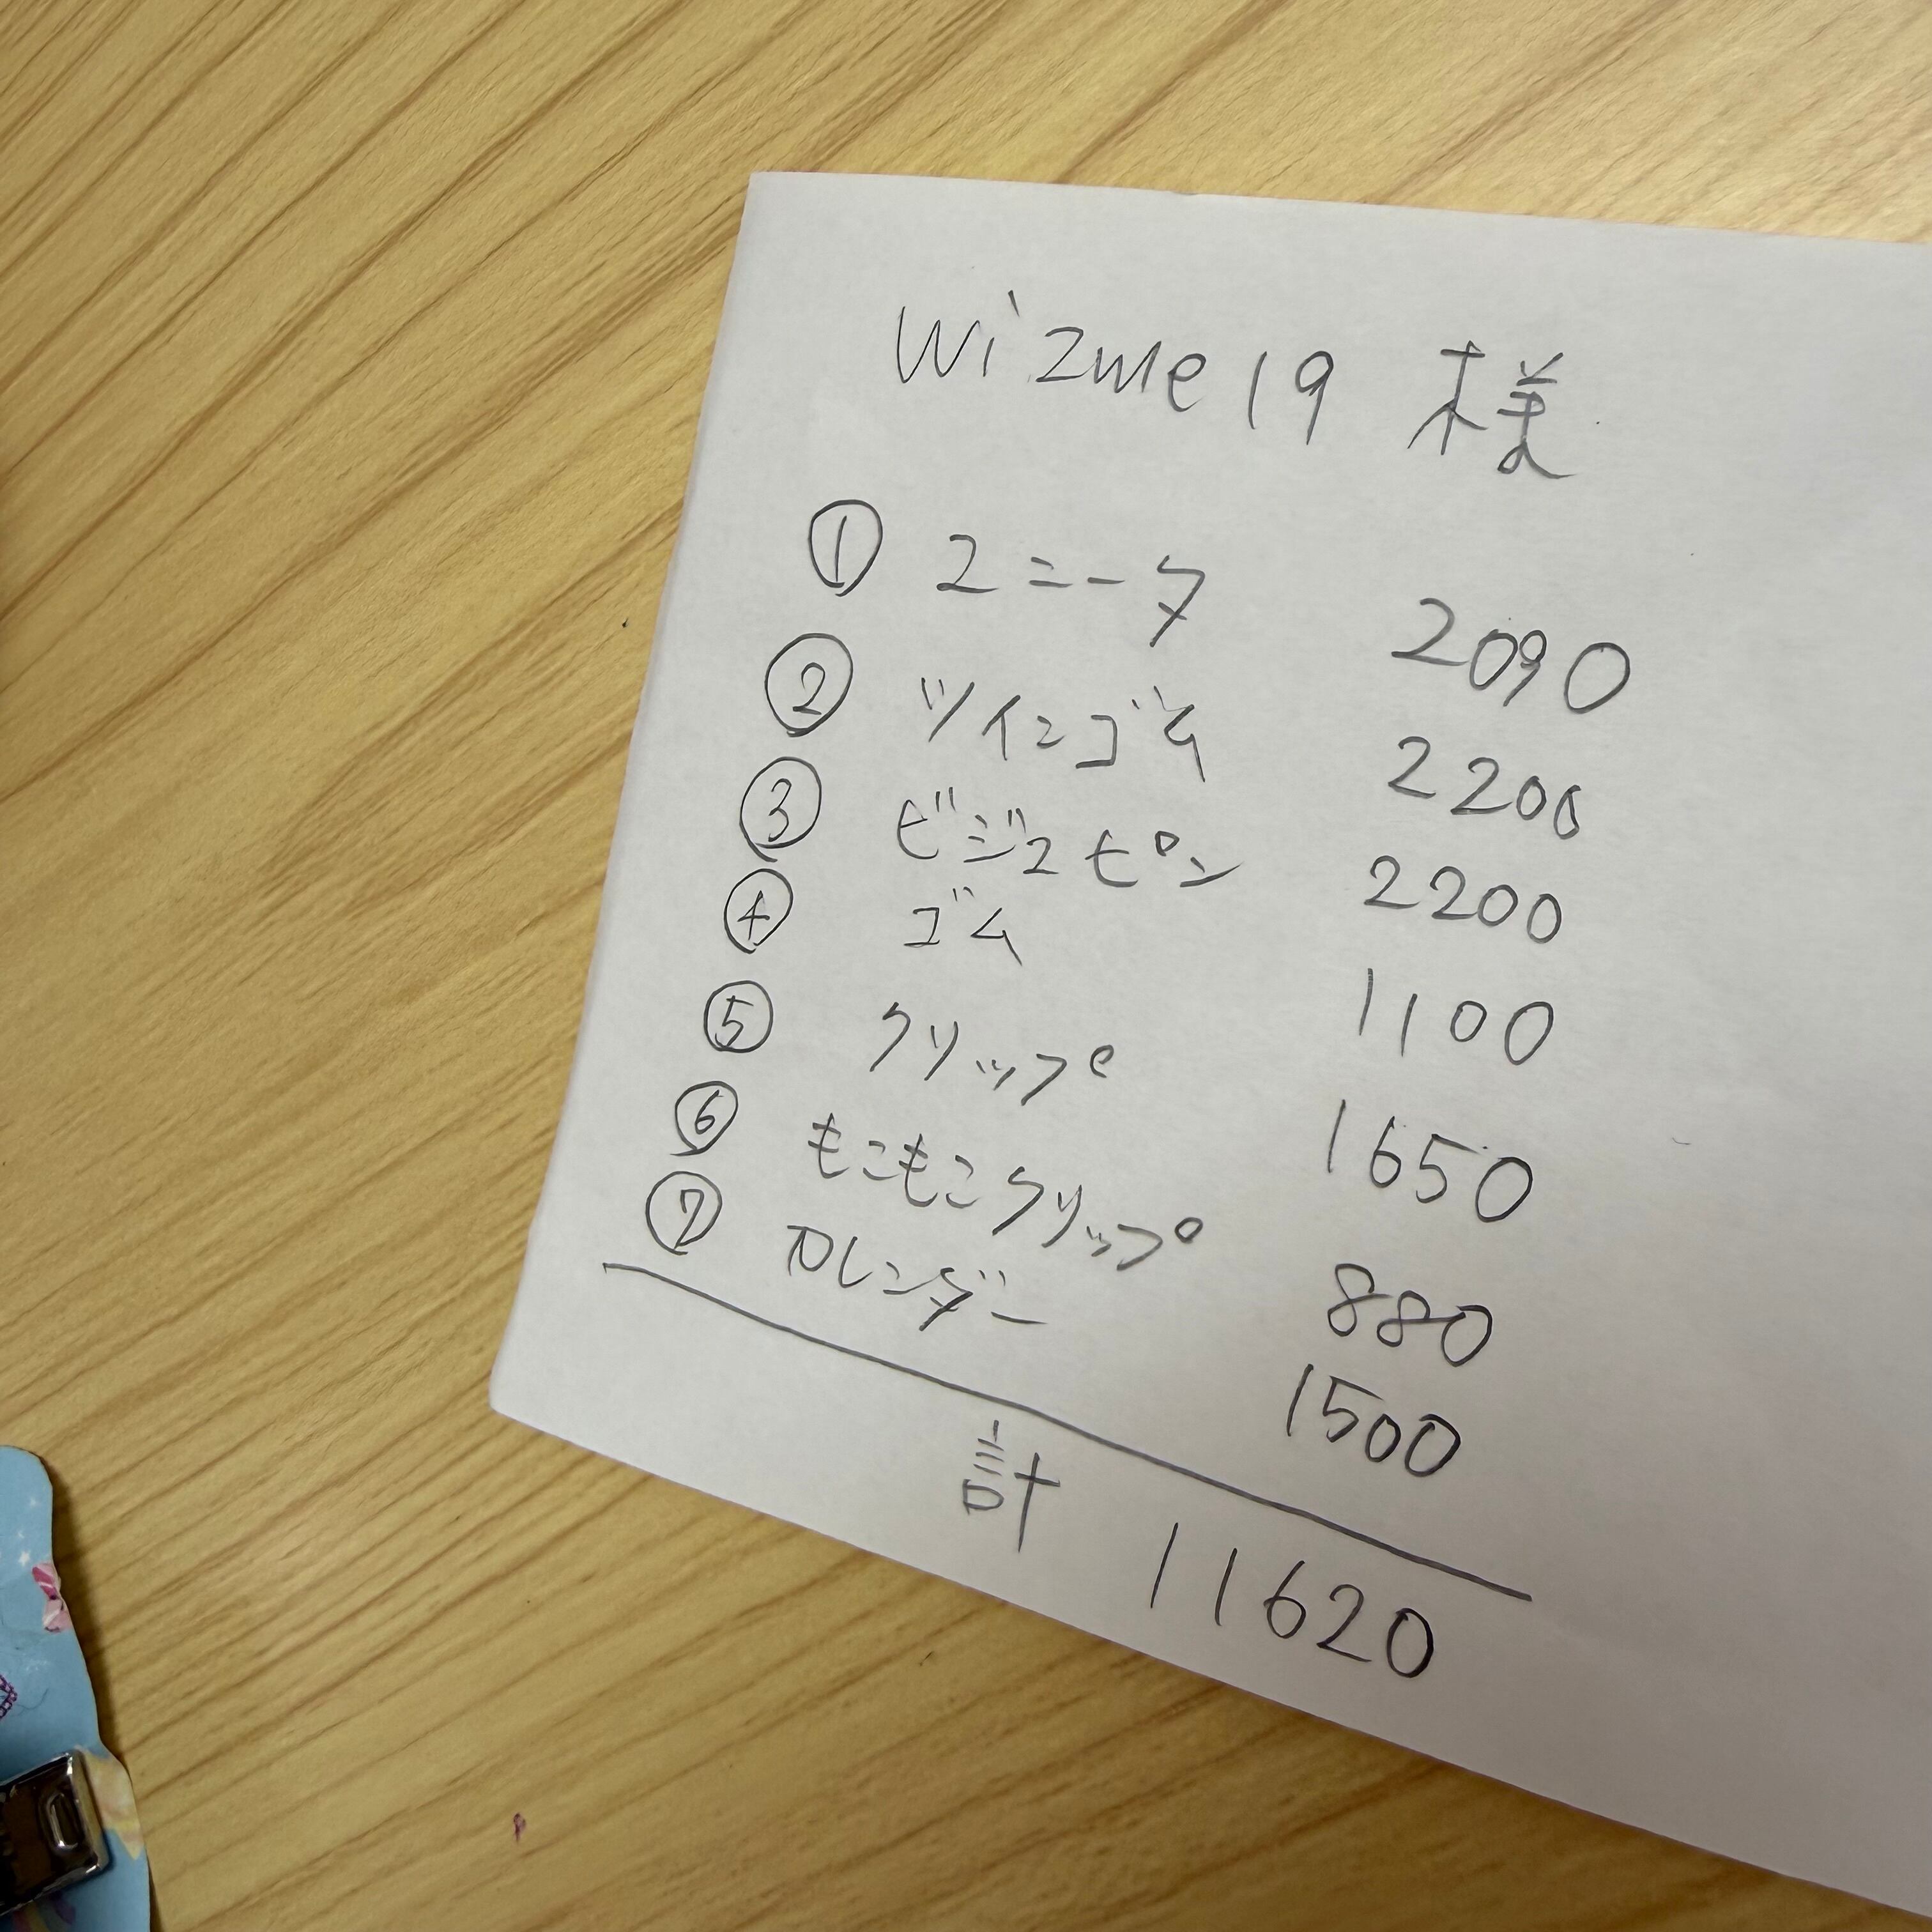 Wizme19 様
① ユニーク 2090
② ツインゴム 2200
③ ビジュピン 2200
④ ゴム 1100
⑤ クリップ 1650
⑥ もこもこクリップ 880
⑦ カレンダー 1500
計 11620